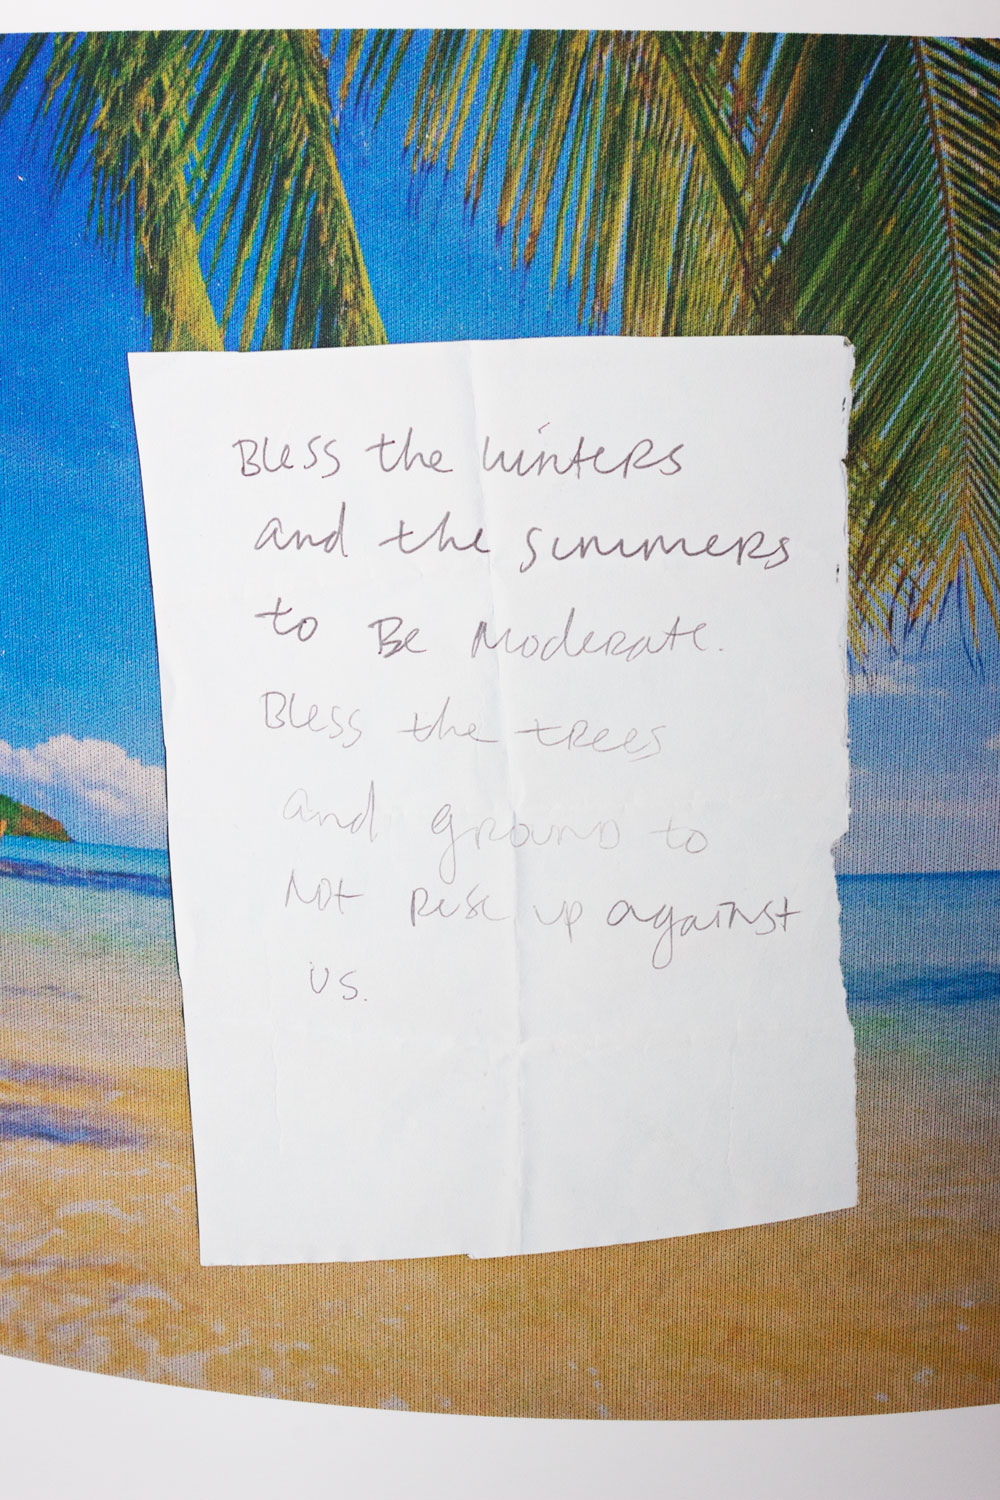 Bless the winters
and the summers
to Be Moderate.
Bless the trees
and ground to
Not Rise up against
us.